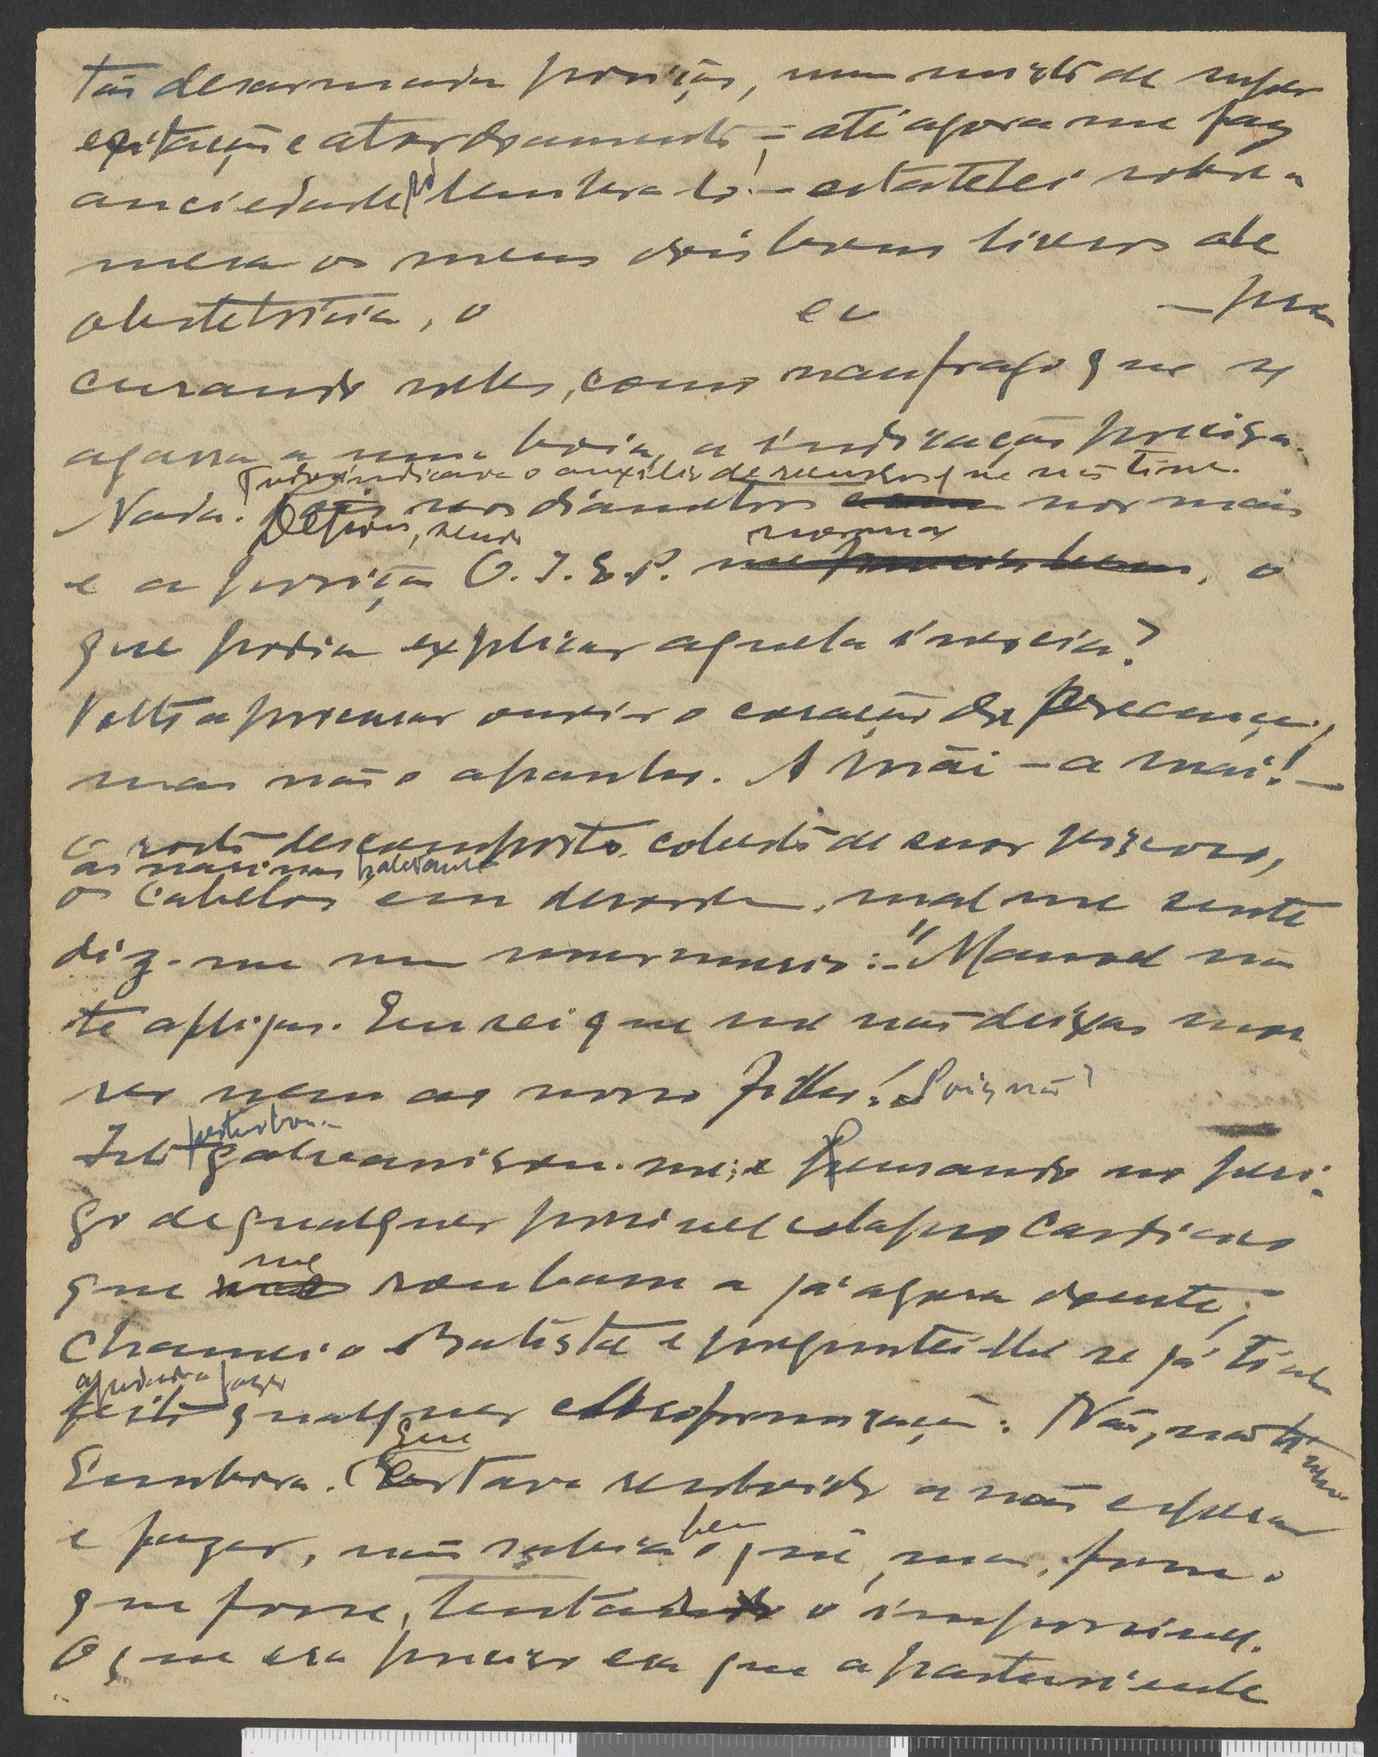 tão desarmada posição, num mixto de super
exitação e atordoamento – até agora me faz
anciedade só lembra-lo! – estatelei sobre a
mesa os meus dois bons livros de
obstetricia, o e o – pro
curando nelles, como naufrago que se
agarra a uma boia, a indicação precisa.
Tudo indicava o auxilio de recursos que não tinha.
Nada. nos diametros normais
Depois, sendo normal
e a posição O. I. E. P. , o
que podia explicar aquela inercia?
Volto a procurar ouvir o coração da creança,
mas não o apanho. A mãi – a mãi! –
o rosto descomposto, coberto de suor viscoso,
as narinas palpitantes
os cabelos em desordem, mal me sente
diz-me num murmurio: – "Manoel não
te aflijas. Eu sei que me não deixas mor
rer nem ao nosso filho! Pois não?
perturbou-
Isto galvanisou-me; e Pensando no peri-
go de qualquer possivel colapso cardiaco
me
que roubam a já agora doente,
chamei o Batista e perguntei-lhe se já tinha
ajudado a fazer
feito qualquer cloroformização. Não, não tinha
Que
Embora. Estava resolvido a não esperar
e fazer, não sabia bem o quê, mas, fosse o
que fosse, tentar o impossivel.
O que era preciso era que a parturiente